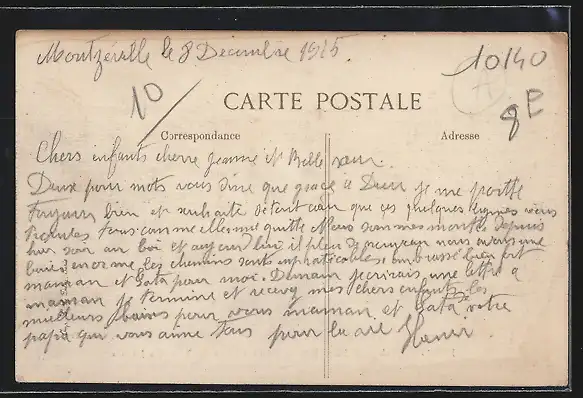 Montzéville le 8 Décembre 1915.
10140
10
8 E
A
CARTE POSTALE
Correspondance
Adresse
Chers enfants cherre Jeanne et Belle sœur.
Deux petits mots vous dire que grace a Dieu je me porte
Toujours bien et souhaite de tout cœur que ces quelques lignes vous
tous comme elles me quitte Nous sommes montés depuis
hier soir au boi et aujourd'hui il pleu de nouveau nous avons une
boue enorme les chemins sont inpraticables embrassé bien fort
maman et Gata pour moi. Demain jecrirais une lettre a
maman je termine et recevez mes chers enfants les
meilleurs baires pour vous maman et Gata votre
papa qui vous aime tous pour la vie Henri